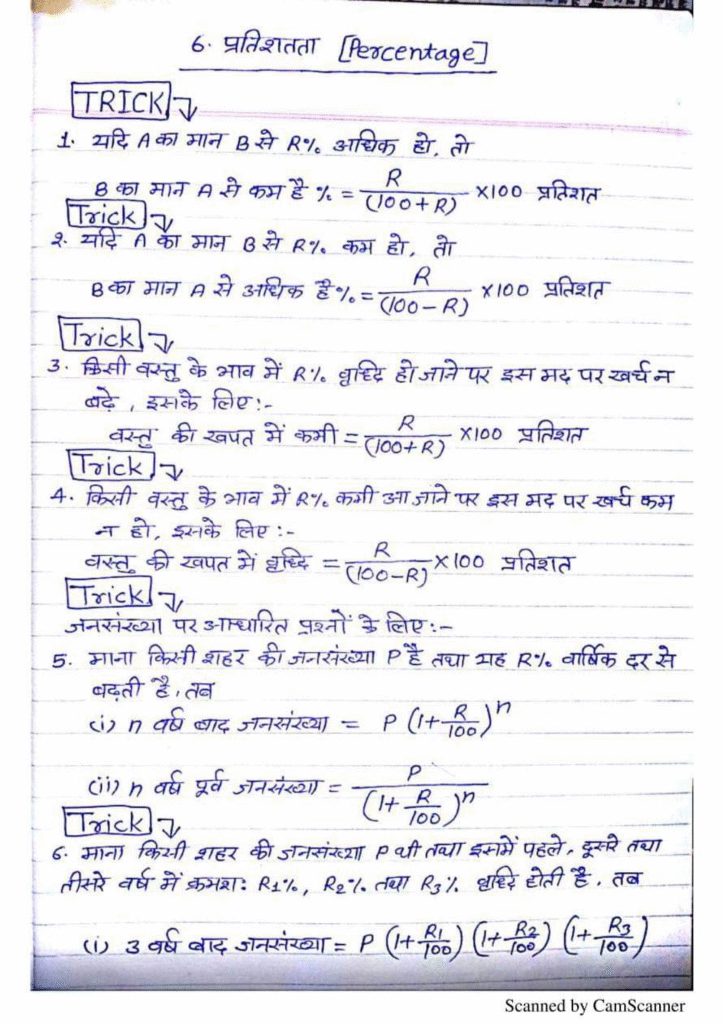 6. प्रतिशतता [Percentage]
TRICK
1. यदि A का मान B से R% अधिक हो, तो
B का मान A से कम है % = R/(100+R) ×100 प्रतिशत
Trick
2. यदि A का मान B से R% कम हो, तो
B का मान A से अधिक है % = R/(100-R) ×100 प्रतिशत
Trick
3. किसी वस्तु के भाव में R% वृद्धि हो जाने पर इस मद पर खर्च न
बढ़े, इसके लिए:-
वस्तु की खपत में कमी = R/(100+R) ×100 प्रतिशत
Trick
4. किसी वस्तु के भाव में R% कमी आ जाने पर इस मद पर खर्च कम
न हो, इसके लिए:-
वस्तु की खपत में वृद्धि = R/(100-R) ×100 प्रतिशत
Trick
जनसंख्या पर आधारित प्रश्नों के लिए:-
5. माना किसी शहर की जनसंख्या P है तथा यह R% वार्षिक दर से
बढ़ती है, तब
(i) n वर्ष बाद जनसंख्या = P(1+R/100)^n
(ii) n वर्ष पूर्व जनसंख्या = P/(1+R/100)^n
Trick
6. माना किसी शहर की जनसंख्या P थी तथा इसमें पहले, दूसरे तथा
तीसरे वर्ष में क्रमश: R1%, R2% तथा R3% वृद्धि होती है, तब
(i) 3 वर्ष बाद जनसंख्या = P(1+R1/100)(1+R2/100)(1+R3/100)
Scanned by CamScanner